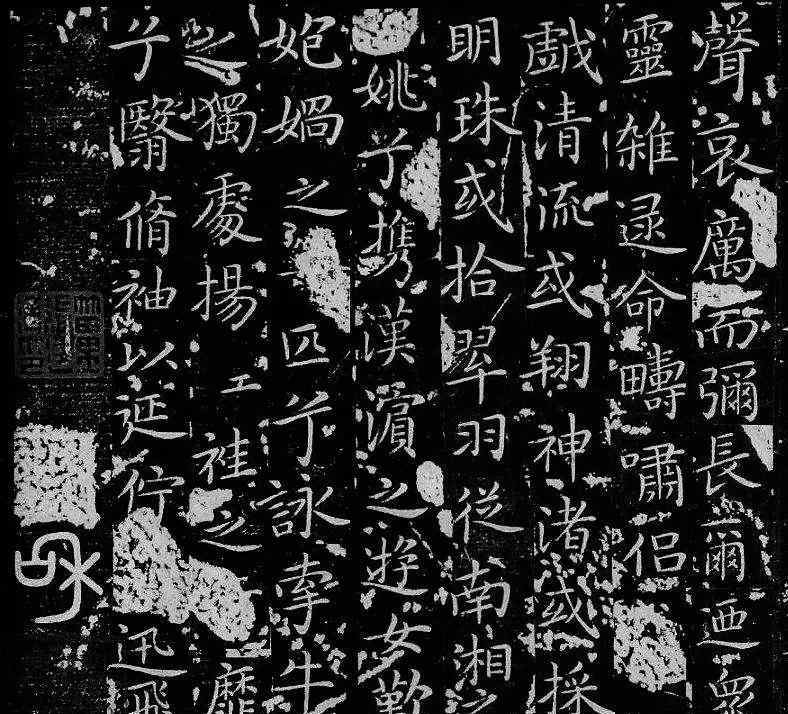 聲哀厲而彌長爾迺眾
靈雜遝命疇嘯侶
戲清流或翔神渚或採
明珠或拾翠羽從南湘之
姚兮携漢濱之遊女歎
匏媧之匹兮詠牽牛
之獨處揚袿之靡
兮翳脩袖以延佇迅飛